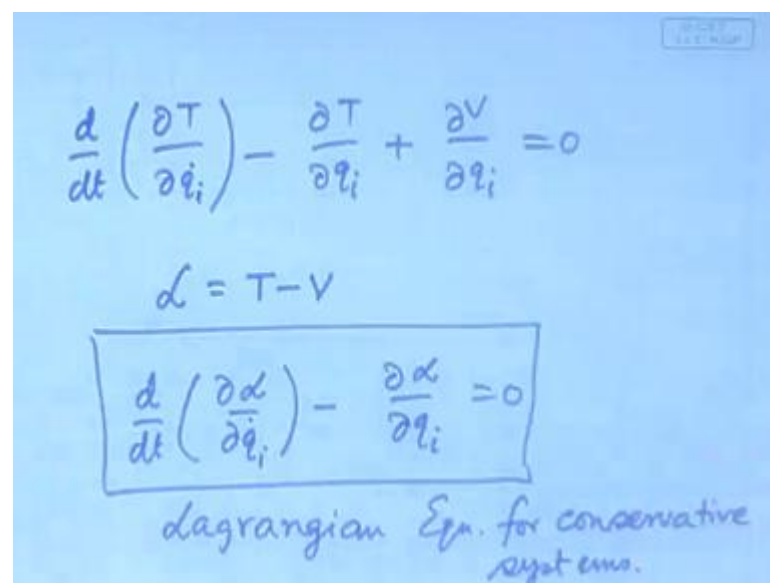 d/dt (∂T/∂q̇ᵢ) − ∂T/∂qᵢ + ∂V/∂qᵢ = 0
ℒ = T − V
d/dt (∂ℒ/∂q̇ᵢ) − ∂ℒ/∂qᵢ = 0
Lagrangian Eqn. for conservative
systems.